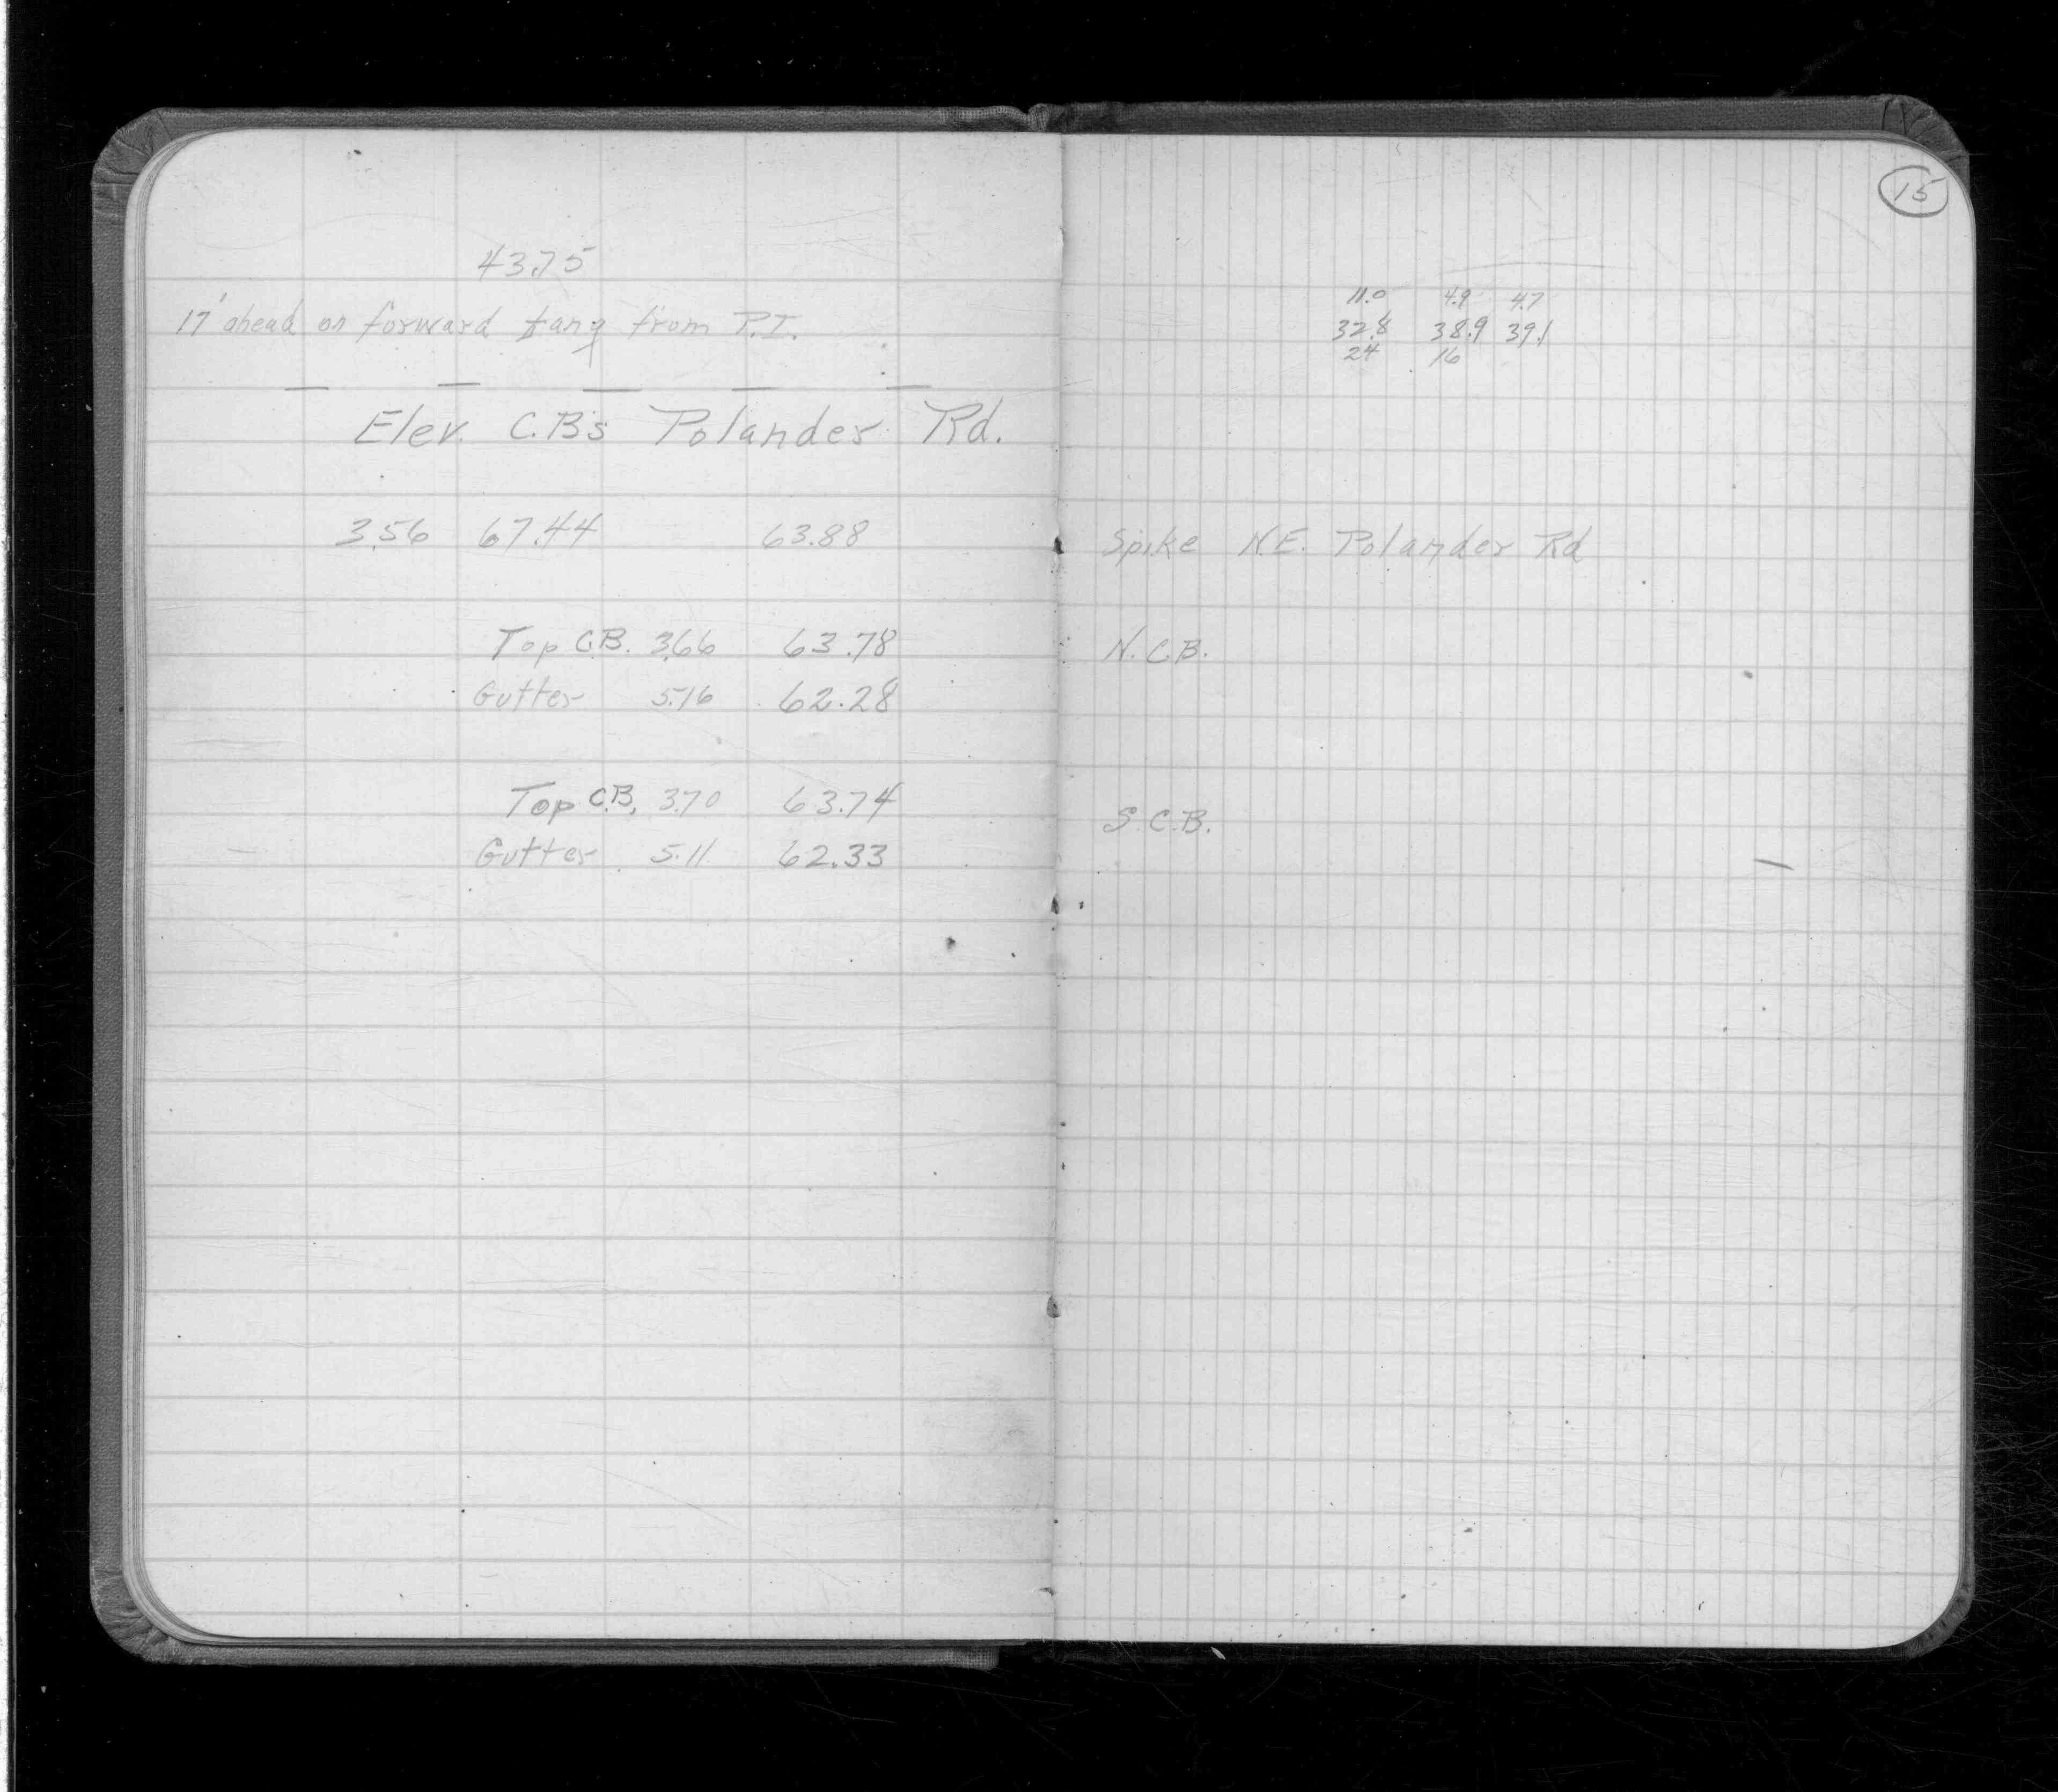 43.75
17' ahead on forward tang from P.I.
Elev. C.B's Polander Rd.
3.56 67.44 63.88
Top C.B. 3.66 63.78
Gutter 5.16 62.28
Top C.B. 3.70 63.74
Gutter 5.11 62.33
15
11.0 4.9 4.7
32.8 38.9 39.1
24 16
Spike N.E. Polander Rd
N. C.B.
S. C.B.